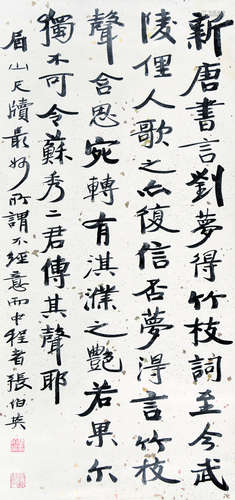 新唐書言劉夢得竹枝詞至今武
陵俚人歌之不復信否夢得言竹枝
聲含思宛轉有淇濮之艷若果尔
獨不可令蘇秀二君傳其聲耶
眉山尺牘最妙所謂不經意而中程者張伯英